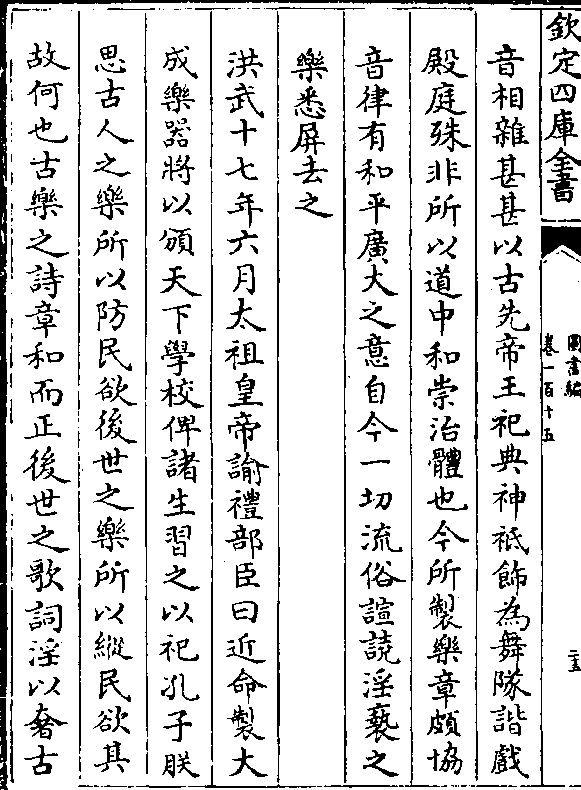 欽定四庫全書
圖書編
卷一百十五
二五
音相雜甚甚以古先帝王祀典神祇飾為舞隊諧戲
殿庭殊非所以道中和崇治體也今所製樂章頗協
音律有和平廣大之意自今一切流俗諠譊淫褻之
樂悉屏去之
洪武十七年六月太祖皇帝諭禮部臣曰近命製大
成樂器將以頒天下學校俾諸生習之以祀孔子朕
思古人之樂所以防民欲後世之樂所以縱民欲其
故何也古樂之詩章和而正後世之歌詞淫以奢古